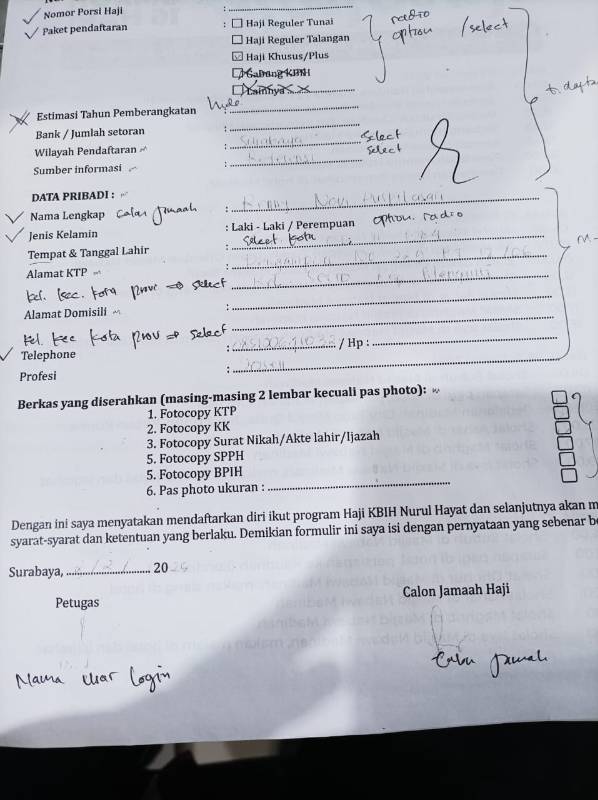 Nomor Porsi Haji :
Paket pendaftaran : Haji Reguler Tunai
Haji Reguler Talangan
Haji Khusus/Plus
Gabung KBIH
Lainnya
radio
option / select
Estimasi Tahun Pemberangkatan :
hide
t. dafta
Bank / Jumlah setoran :
Wilayah Pendaftaran : Surabaya select
Sumber informasi : select
DATA PRIBADI :
Nama Lengkap calon Jmaah :
Jenis Kelamin : Laki - Laki / Perempuan option. radio
Tempat & Tanggal Lahir : select kota
Alamat KTP :
kel. kec. kota prov => select
Alamat Domisili :
kel kec kota prov => select
Telephone : / Hp :
Profesi :
Berkas yang diserahkan (masing-masing 2 lembar kecuali pas photo):
1. Fotocopy KTP
2. Fotocopy KK
3. Fotocopy Surat Nikah/Akte lahir/Ijazah
5. Fotocopy SPPH
5. Fotocopy BPIH
6. Pas photo ukuran :
Dengan ini saya menyatakan mendaftarkan diri ikut program Haji KBIH Nurul Hayat dan selanjutnya akan m
syarat-syarat dan ketentuan yang berlaku. Demikian formulir ini saya isi dengan pernyataan yang sebenar b
Surabaya, 20
Petugas Calon Jamaah Haji
Nama user login
Calon Jamaah